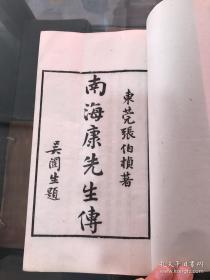 東莞張伯楨著
南海康先生傳
吳闓生題